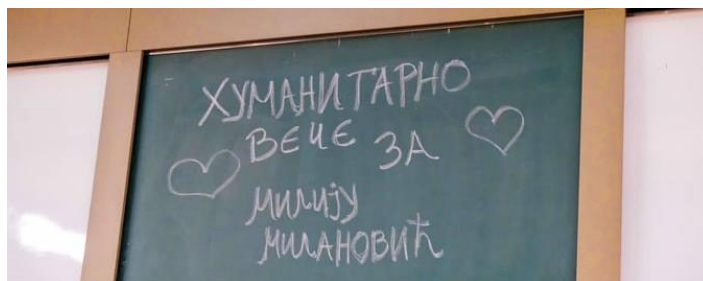 ХУМАНИТАРНО
ВЕЧЕ ЗА
МИЛИЈУ
МИЛАНОВИЋ